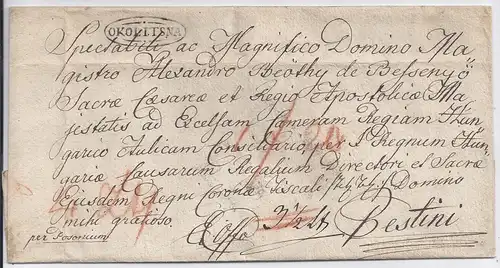 OKOLITSNA
Spectabili ac Magnifico Domino Ma
gistro Alexandro Beöthy de Bessenyö
Sacræ Cæsareæ et Regio Apostolicæ Ma
jestatis ad Excelsam Cameram Regiam Hun
garico Aulicam Consiliario, per Regnum Hun
gariæ Causarum Regalium Directori et Sacræ
Ejusdem Regni Coronæ Fiscali Domino
mihi gratioso.
per Posonium
Ex Offo
Pestini